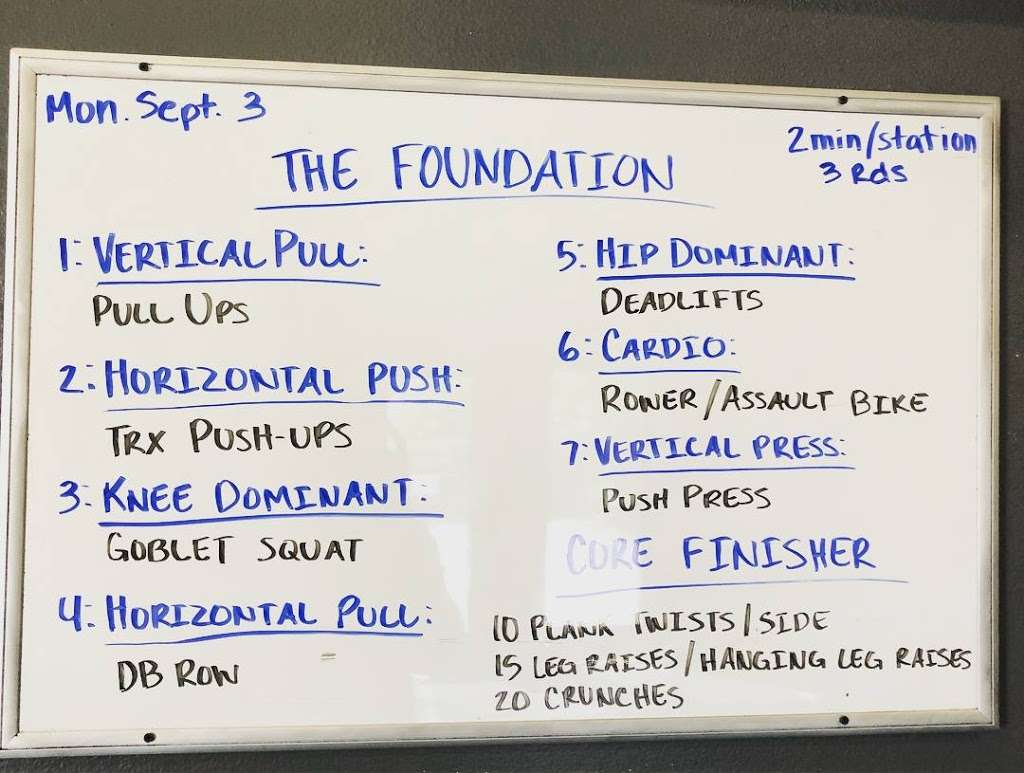 Mon. Sept. 3
2min/station
3 Rds
THE FOUNDATION
1: VERTICAL PULL:
PULL UPS
2: HORIZONTAL PUSH:
TRX PUSH-UPS
3: KNEE DOMINANT:
GOBLET SQUAT
4: HORIZONTAL PULL:
DB ROW
5: HIP DOMINANT:
DEADLIFTS
6: CARDIO:
ROWER/ASSAULT BIKE
7: VERTICAL PRESS:
PUSH PRESS
CORE FINISHER
10 PLANK TWISTS/SIDE
15 LEG RAISES/HANGING LEG RAISES
20 CRUNCHES